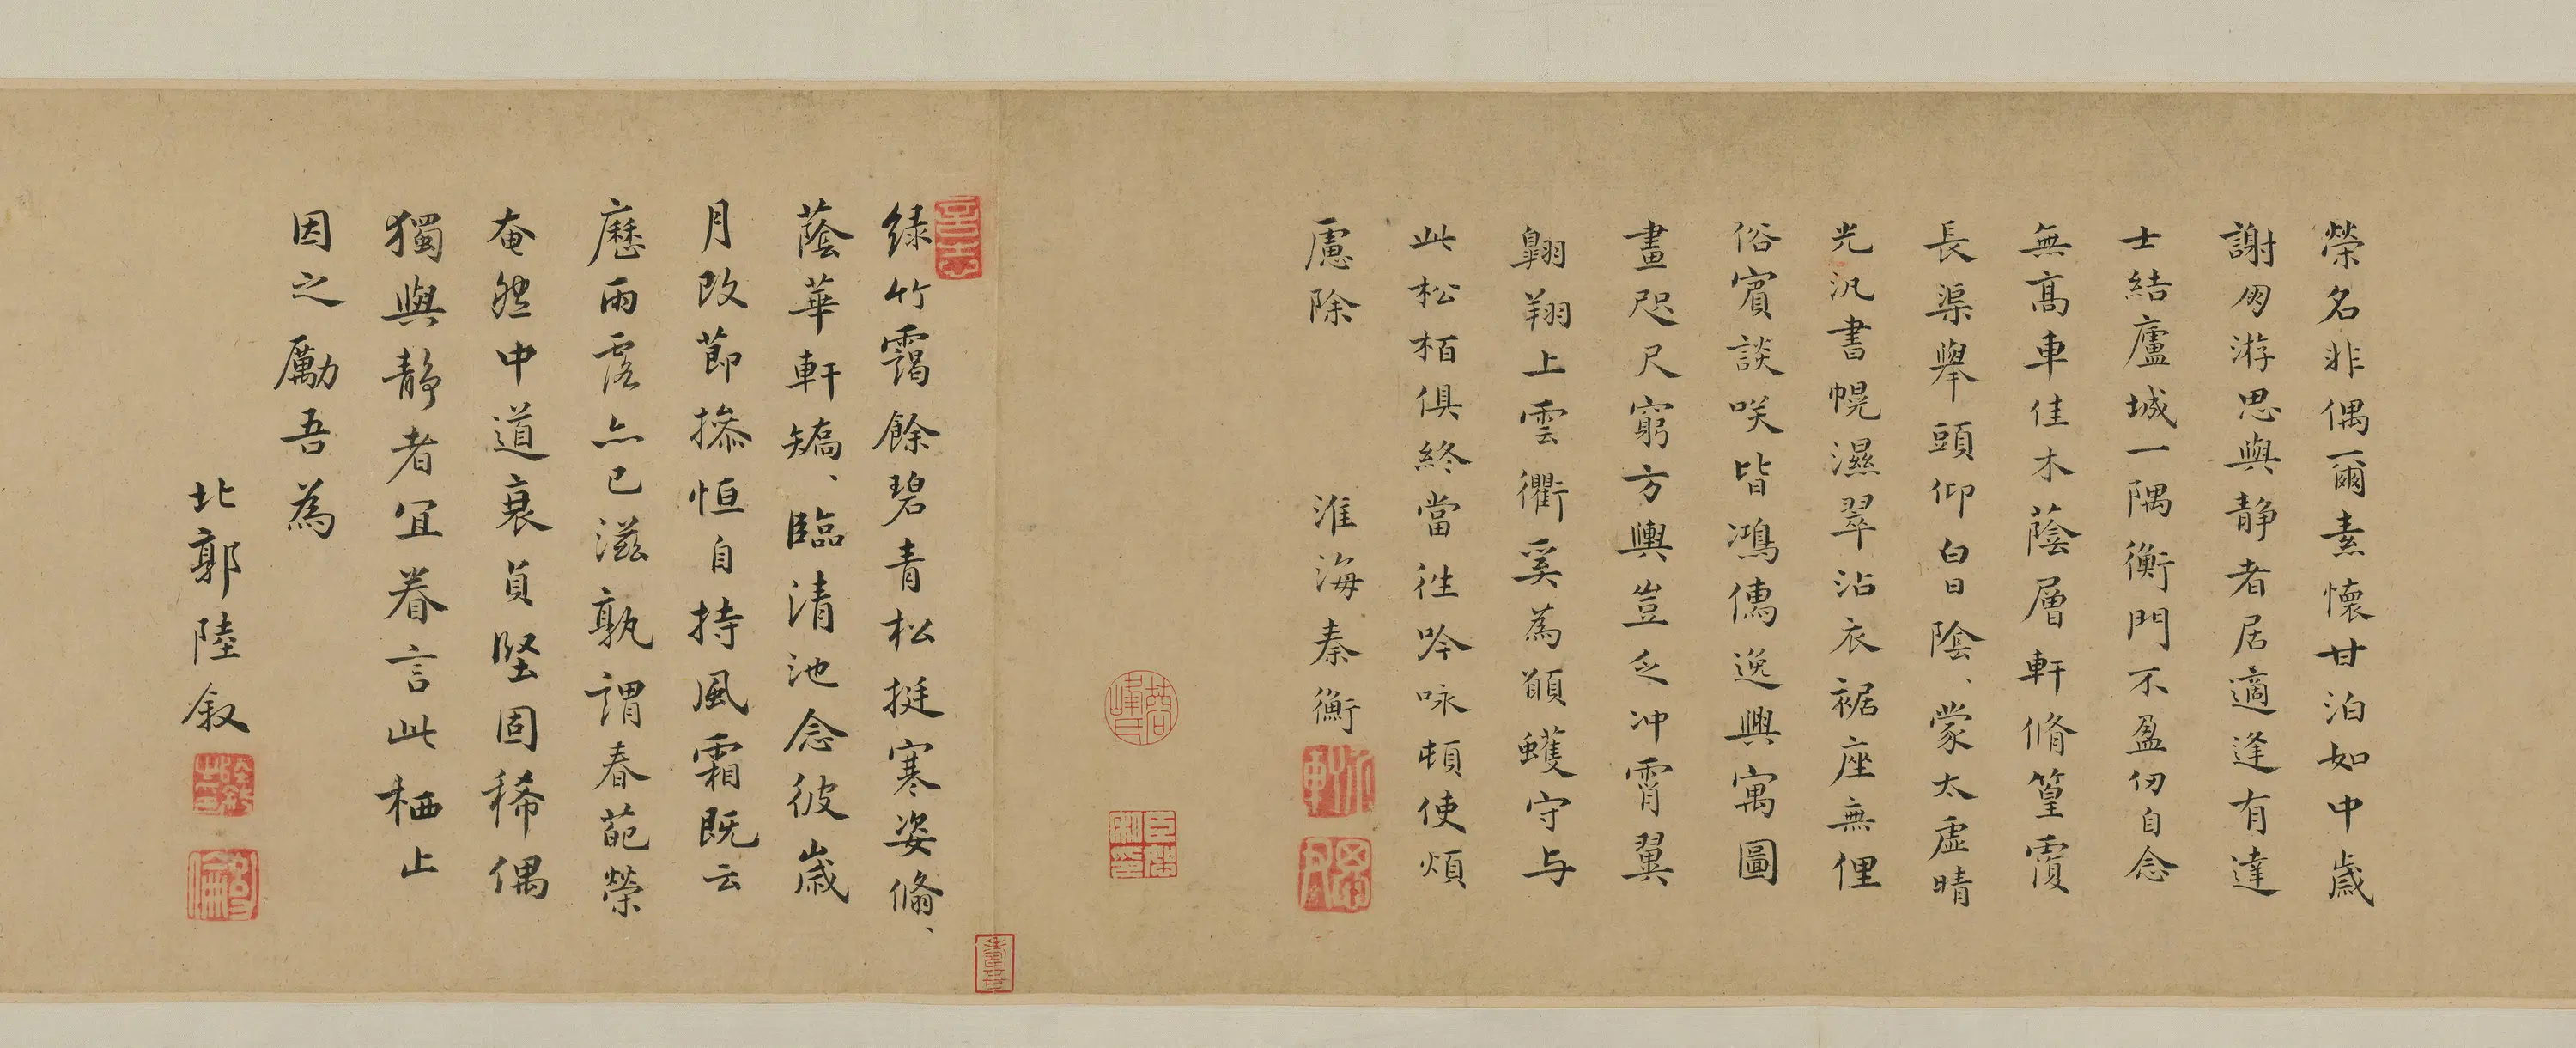 榮名非偶爾素懷甘泊如中歲
謝勿游思與静者居適逢有達
士結廬城一隅衡門不盈仞自念
無髙車佳木蔭層軒脩篁覆
長渠舉頭仰白日陰、蒙太虛晴
光汎書幌濕翠沾衣裾座無俚
俗賓談咲皆鴻儁逸興寓圖
畫咫尺窮方輿豈乏冲霄翼
翱翔上雲衢奚為顓蠖守与
此松栢俱終當徃吟咏頓使煩
慮除
淮海秦衡
绿竹靄餘碧青松挺寒姿翛、
蔭華軒矯、臨清池念彼歲
月改節摻恒自持風霜既云
歷雨露亦已滋孰謂春葩榮
奄然中道衰貞堅固稀偶
獨與静者冝眷言此栖止
因之勵吾為
北郭陸叙